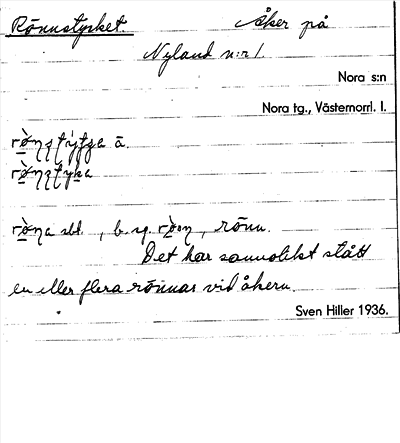 Rönnstycket. Åker på
Nyland n:r 1
Nora s:n
Nora tg., Västernorrl. l.
ā.
sbt., b. sg. , rönn.
Det har sannolikt stått
en eller flera rönnar vid åkern.
Sven Hiller 1936.